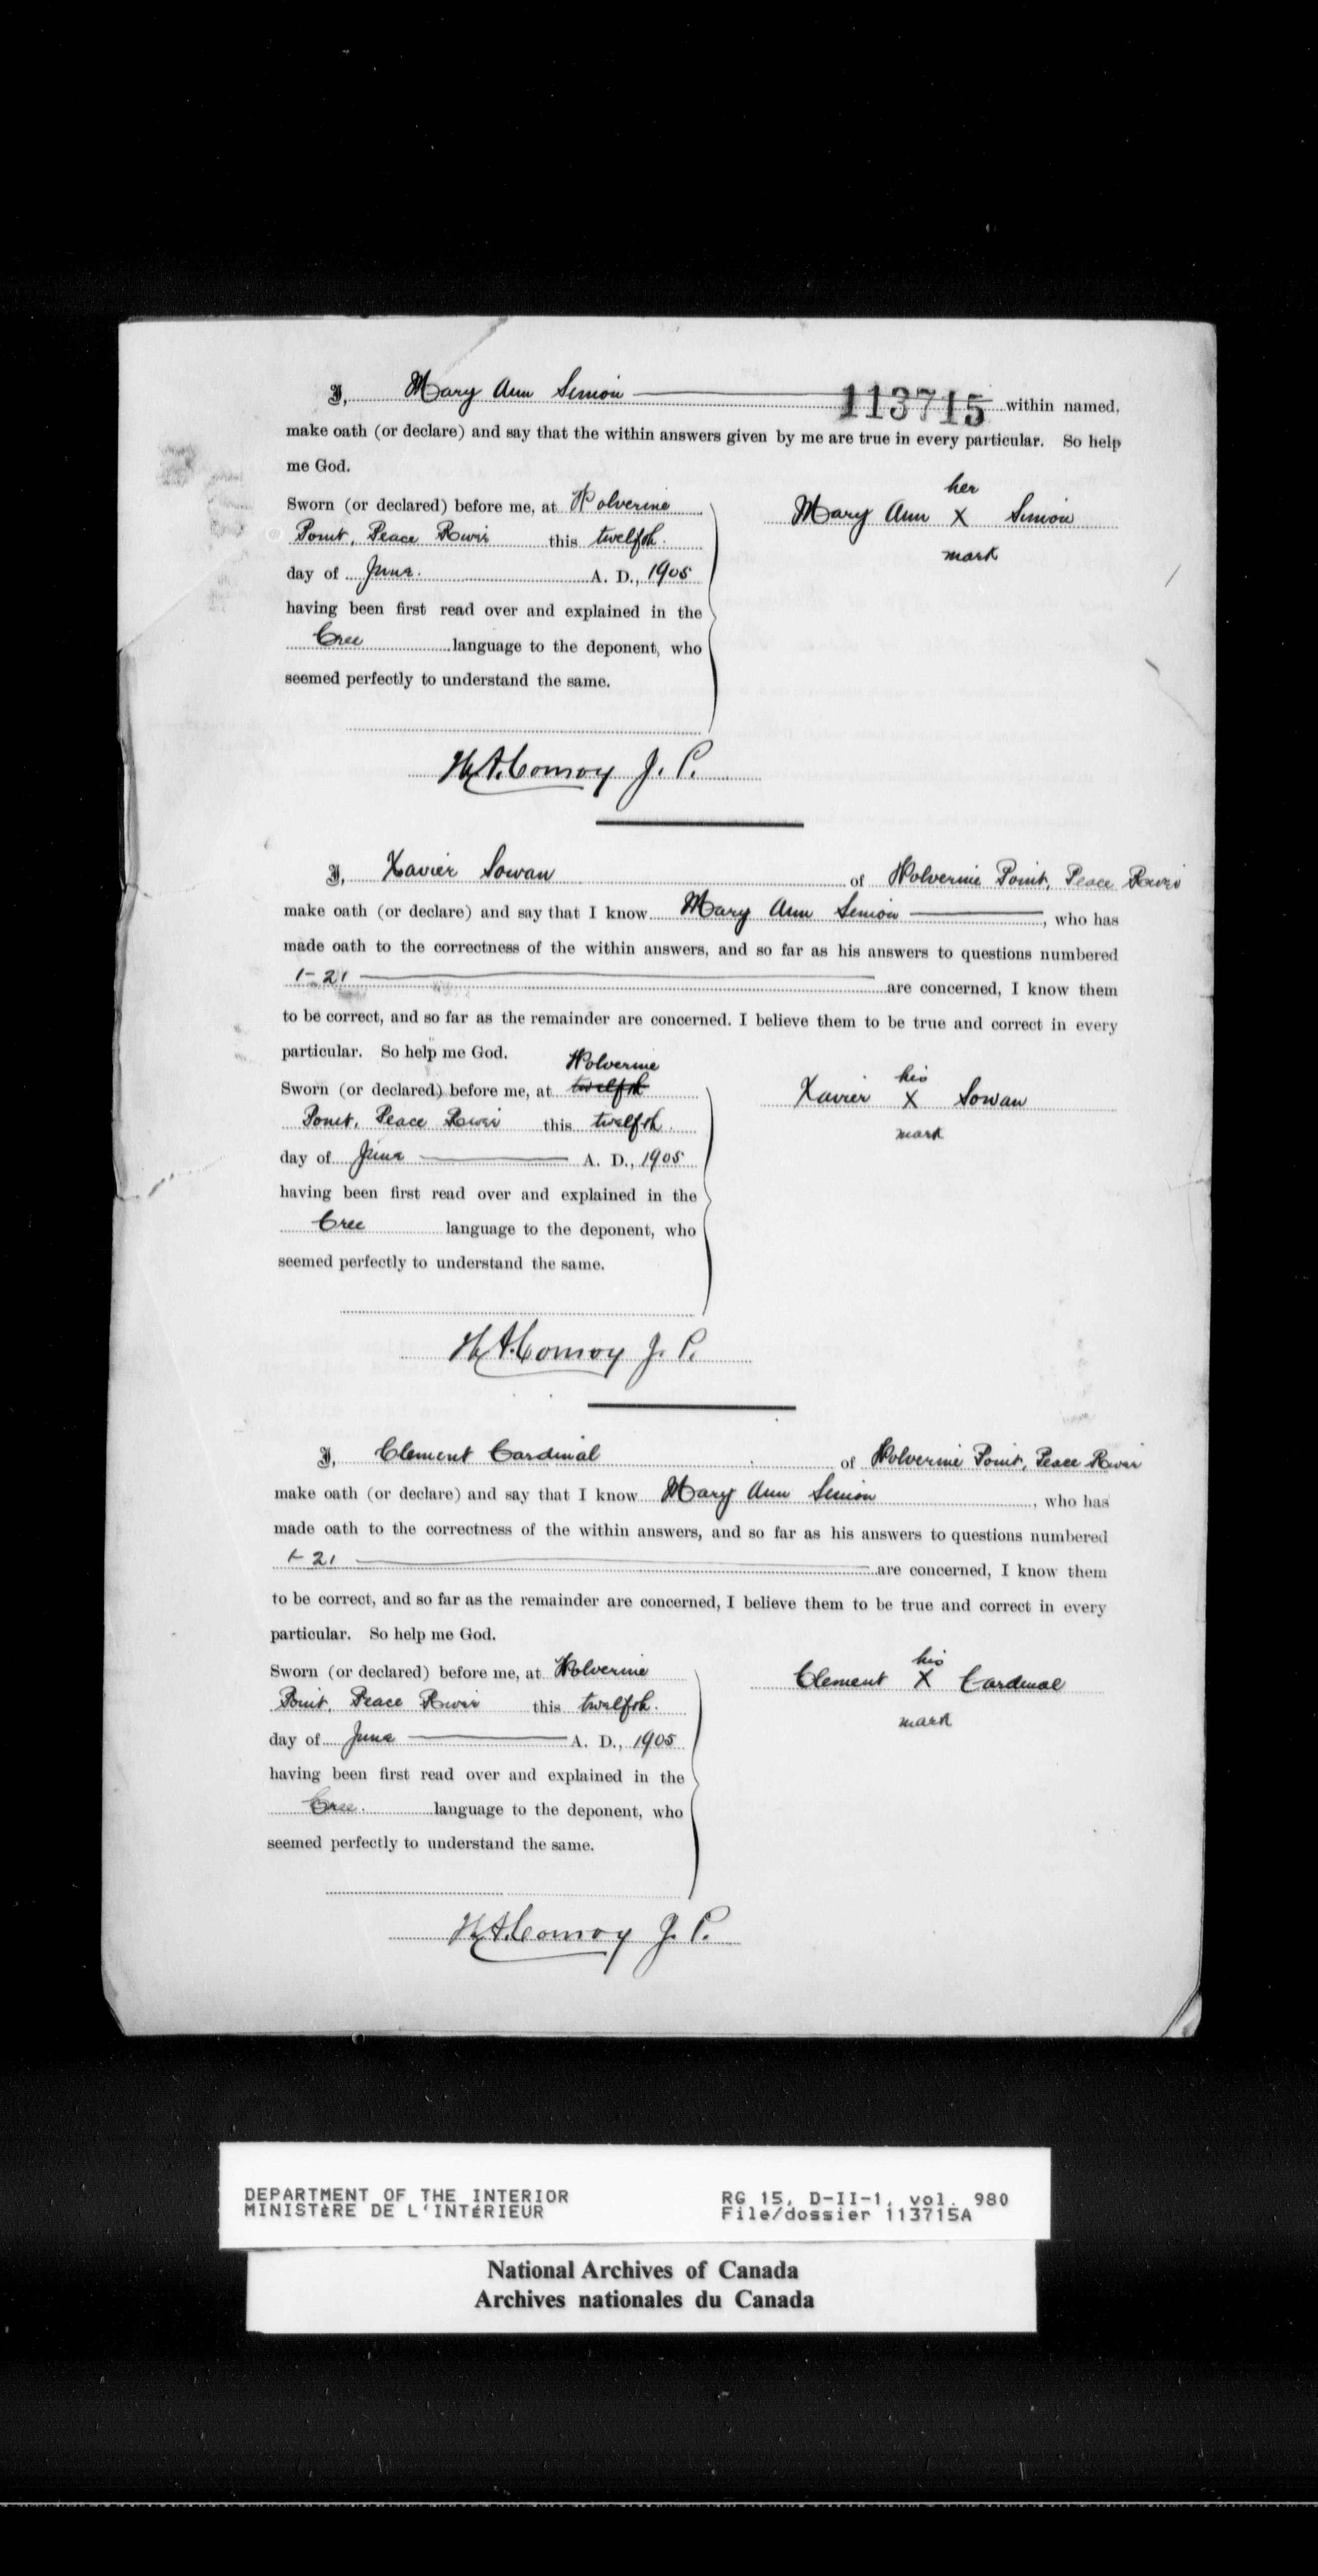 I, Mary Ann Simon 113715 within named,
make oath (or declare) and say that the within answers given by me are true in every particular. So help
me God.
Sworn (or declared) before me, at Wolverine
Point, Peace River this twelfth.
day of June. A. D., 1905
having been first read over and explained in the
Cree language to the deponent, who
seemed perfectly to understand the same.
her
Mary Ann X Simon
mark
H.A. Conroy J. P.
I, Xavier Sowan of Wolverine Point, Peace River
make oath (or declare) and say that I know Mary Ann Simon, who has
made oath to the correctness of the within answers, and so far as his answers to questions numbered
1-21 are concerned, I know them
to be correct, and so far as the remainder are concerned. I believe them to be true and correct in every
particular. So help me God.
Wolverine
Sworn (or declared) before me, at twelfth
Point, Peace River this twelfth.
day of June A. D., 1905
having been first read over and explained in the
Cree language to the deponent, who
seemed perfectly to understand the same.
his
Xavier X Sowan
mark
H.A. Conroy J. P.
I, Clement Cardinal of Wolverine Point, Peace River
make oath (or declare) and say that I know Mary Ann Simon, who has
made oath to the correctness of the within answers, and so far as his answers to questions numbered
1-21 are concerned, I know them
to be correct, and so far as the remainder are concerned, I believe them to be true and correct in every
particular. So help me God.
Sworn (or declared) before me, at Wolverine
Point, Peace River this twelfth.
day of June A. D., 1905
having been first read over and explained in the
Cree. language to the deponent, who
seemed perfectly to understand the same.
his
Clement X Cardinal
mark
H.A. Conroy J. P.
DEPARTMENT OF THE INTERIOR RG 15, D-II-1, vol. 980
MINISTÈRE DE L'INTÉRIEUR File/dossier 113715A
National Archives of Canada
Archives nationales du Canada